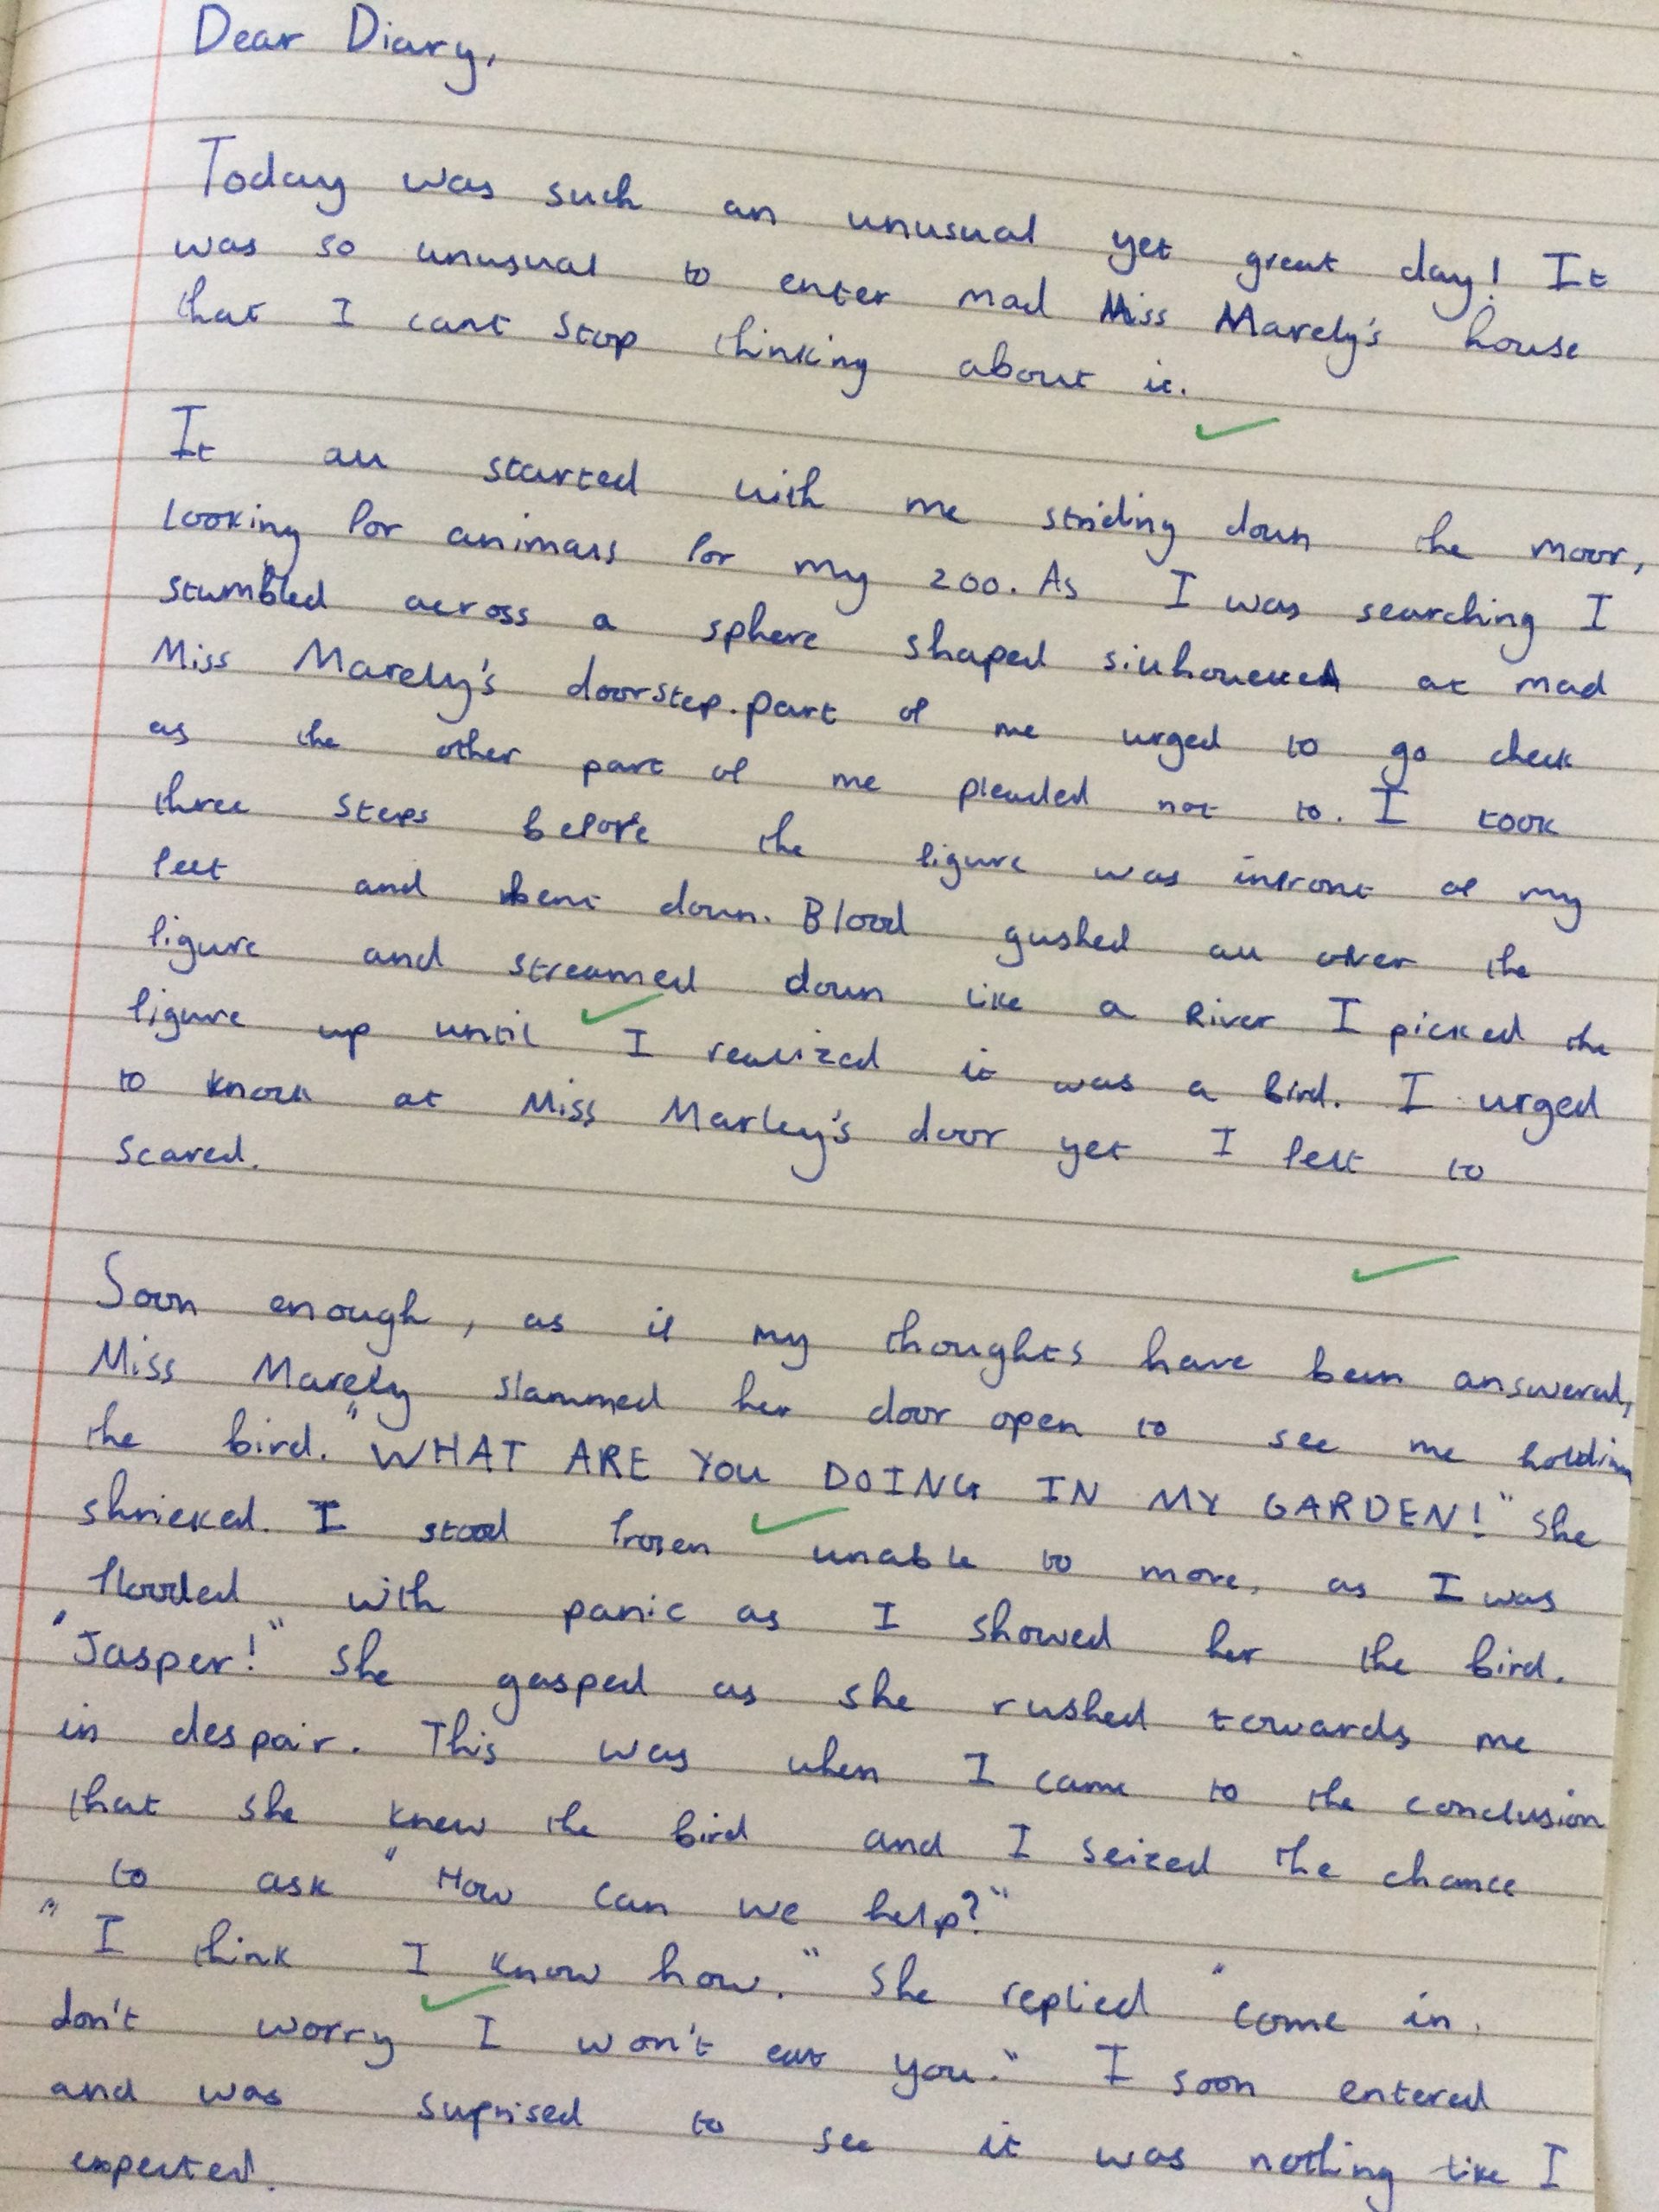 Dear Diary,
Today was such an unusual yet great day! It
was so unusual to enter mad Miss Marely's house
that I cant stop thinking about it.
It all started with me striding down the moor,
looking for animals for my zoo. As I was searching I
stumbled across a sphere shaped silhouette at mad
Miss Marely's doorstep. part of me urged to go check
as the other part of me pleaded not to. I took
three steps before the figure was infront of my
feet and bent down. Blood gushed all over the
figure and streamed down like a River I picked the
figure up until I realized it was a bird. I urged
to knock at Miss Marley's door yet I felt to
scared.
Soon enough, as if my thoughts have been answered,
Miss Marely slammed her door open to see me holding
the bird. "WHAT ARE YOU DOING IN MY GARDEN!" She
shrieked. I stood frozen unable to move, as I was
flooded with panic as I showed her the bird.
"Jasper!" She gasped as she rushed towards me
in despair. This was when I came to the conclusion
that she knew the bird and I seized the chance
to ask "How can we help?"
"I think I know how." She replied "come in.
don't worry I won't eat you." I soon entered
and was suprised to see it was nothing like I
expected.